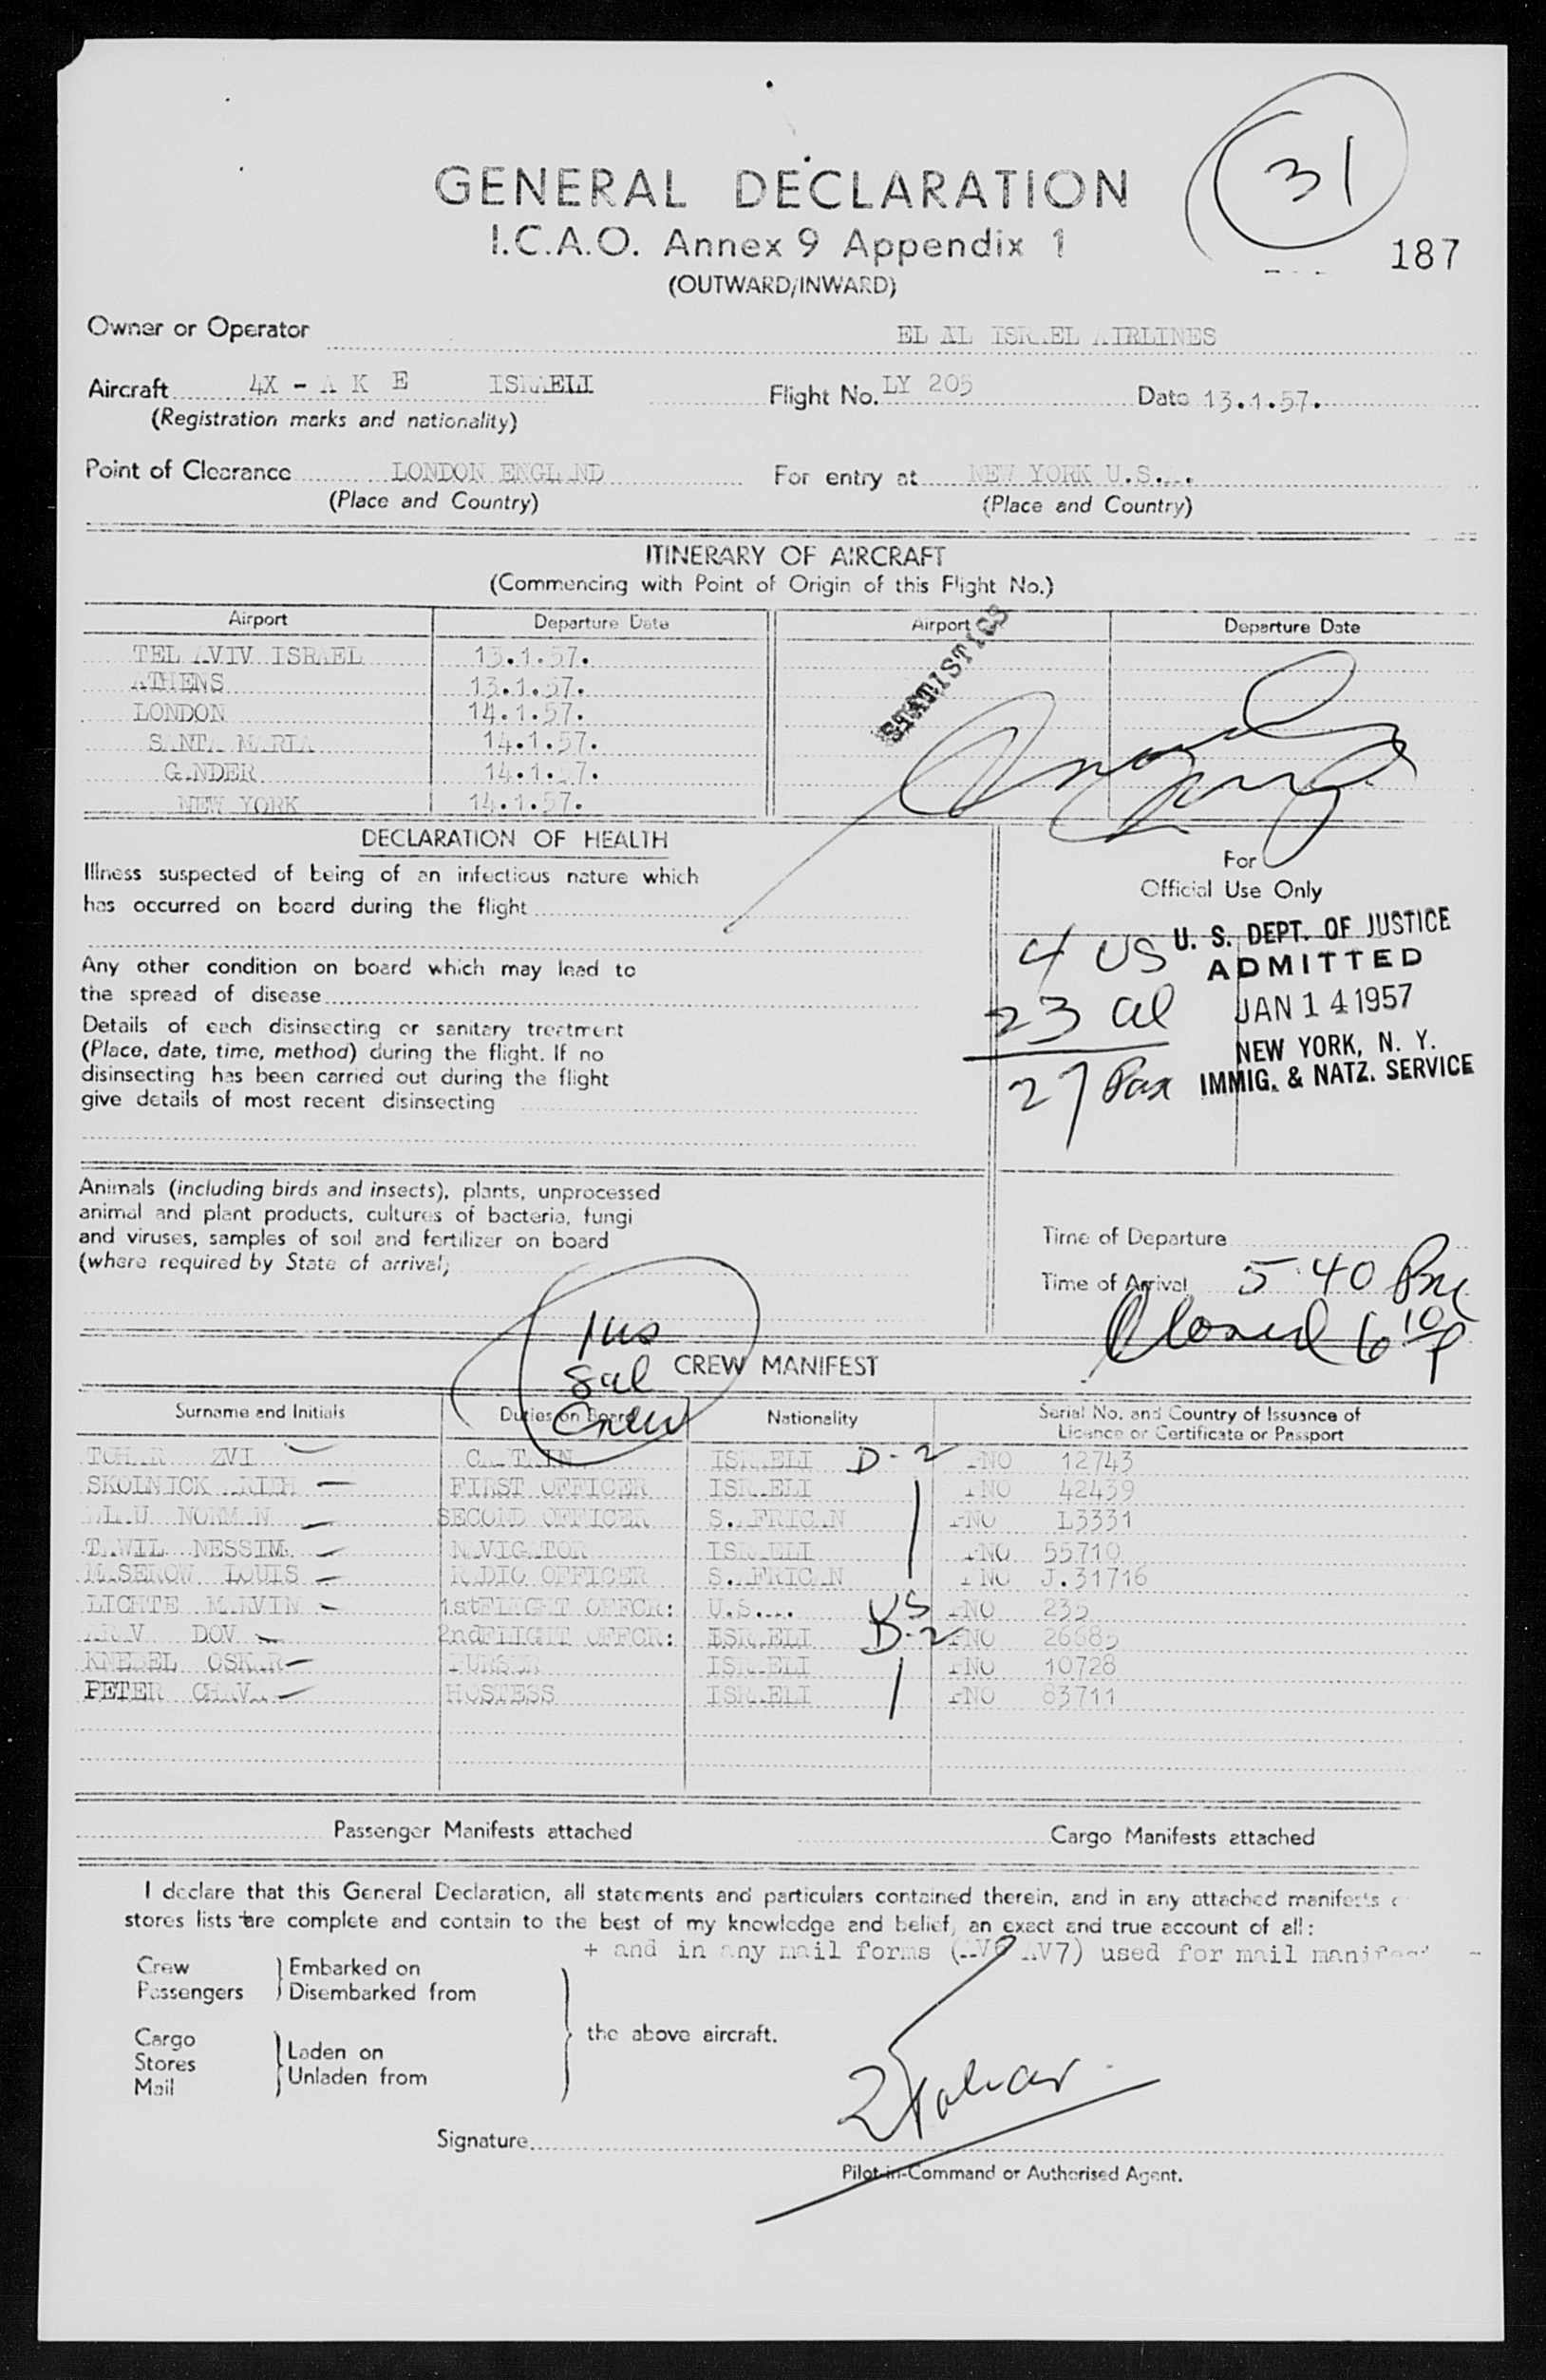 31
187
GENERAL DECLARATION
I.C.A.O. Annex 9 Appendix 1
(OUTWARD/INWARD)
Owner or Operator EL AL ISRAEL AIRLINES
Aircraft 4X - A K E ISRAELI Flight No. LY 205 Date 13.1.57.
(Registration marks and nationality)
Point of Clearance LONDON ENGLAND For entry at NEW YORK U.S.A.
(Place and Country) (Place and Country)
ITINERARY OF AIRCRAFT
(Commencing with Point of Origin of this Flight No.)
Airport Departure Date Airport Departure Date
STATISTICS
TEL AVIV ISRAEL 13.1.57.
ATHENS 13.1.57.
LONDON 14.1.57.
SANTA MARIA 14.1.57.
GANDER 14.1.57.
NEW YORK 14.1.57.
DECLARATION OF HEALTH
For
Official Use Only
Illness suspected of being of an infectious nature which
has occurred on board during the flight
Any other condition on board which may lead to
the spread of disease
Details of each disinsecting or sanitary treatment
(Place, date, time, method) during the flight. If no
disinsecting has been carried out during the flight
give details of most recent disinsecting
4 US
23 al
27 Pax
U. S. DEPT. OF JUSTICE
ADMITTED
JAN 14 1957
NEW YORK, N. Y.
IMMIG. & NATZ. SERVICE
Animals (including birds and insects), plants, unprocessed
animal and plant products, cultures of bacteria, fungi
and viruses, samples of soil and fertilizer on board
(where required by State of arrival)
Time of Departure
Time of Arrival 5:40 Pm
Closed 6 10 P
1 us
8 al
Crew
CREW MANIFEST
Surname and Initials Duties on Board Nationality Serial No. and Country of Issuance of
Licence or Certificate or Passport
TOHAR ZVI CAPTAIN ISRAELI D-2 PNO 12743
SKOLNICK ARIEH FIRST OFFICER ISRAELI PNO 42439
NORMAN SECOND OFFICER S.AFRICAN PNO L3331
TAWIL NESSIM NAVIGATOR ISRAELI PNO 55710
MASEROW LOUIS RADIO OFFICER S.AFRICAN PNO J.31716
LICHTE MARVIN 1stFLIGHT OFFCR: U.S.A. US PNO 235
DOV 2ndFLIGHT OFFCR: ISRAELI D-2 PNO 26685
KNEBEL OSKAR PURSER ISRAELI PNO 10728
PETER CHAVA HOSTESS ISRAELI PNO 83711
Passenger Manifests attached Cargo Manifests attached
I declare that this General Declaration, all statements and particulars contained therein, and in any attached manifests
stores lists + are complete and contain to the best of my knowledge and belief, an exact and true account of all:
+ and in any mail forms (AV7) used for mail manifest
Crew Embarked on
Passengers Disembarked from
the above aircraft.
Cargo Laden on
Stores Unladen from
Mail
Z Tohar
Signature
Pilot-in-Command or Authorised Agent.